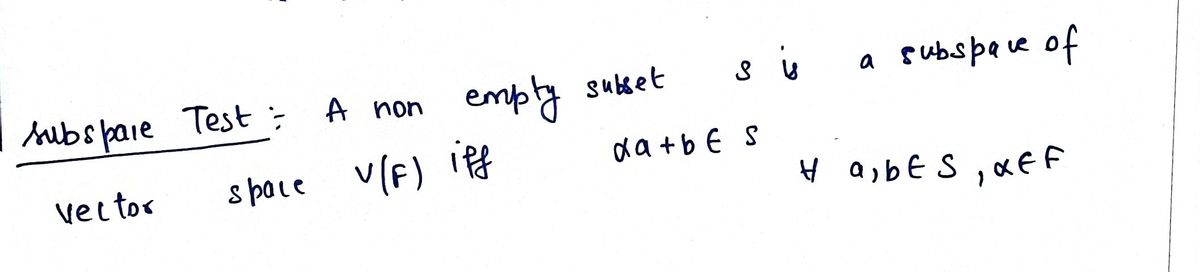 Subspace Test :- A non empty subset S is a subspace of
vector space V(F) iff αa+b ∈ S ∀ a,b ∈ S , α ∈ F